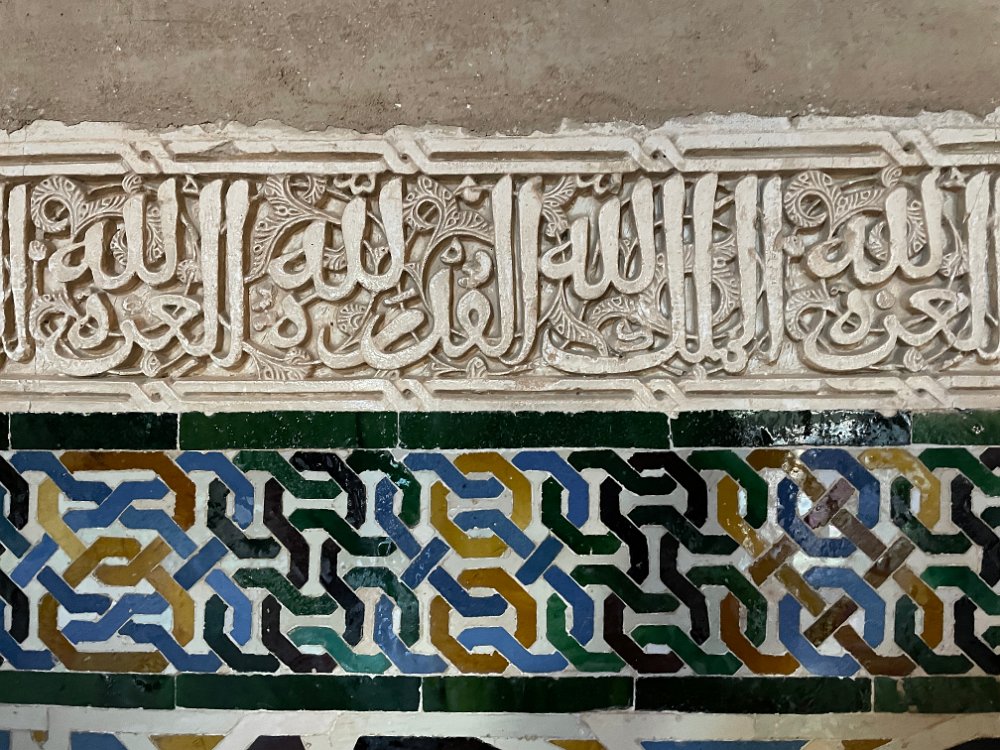 العزة لله الملك لله القدرة لله العزة لله